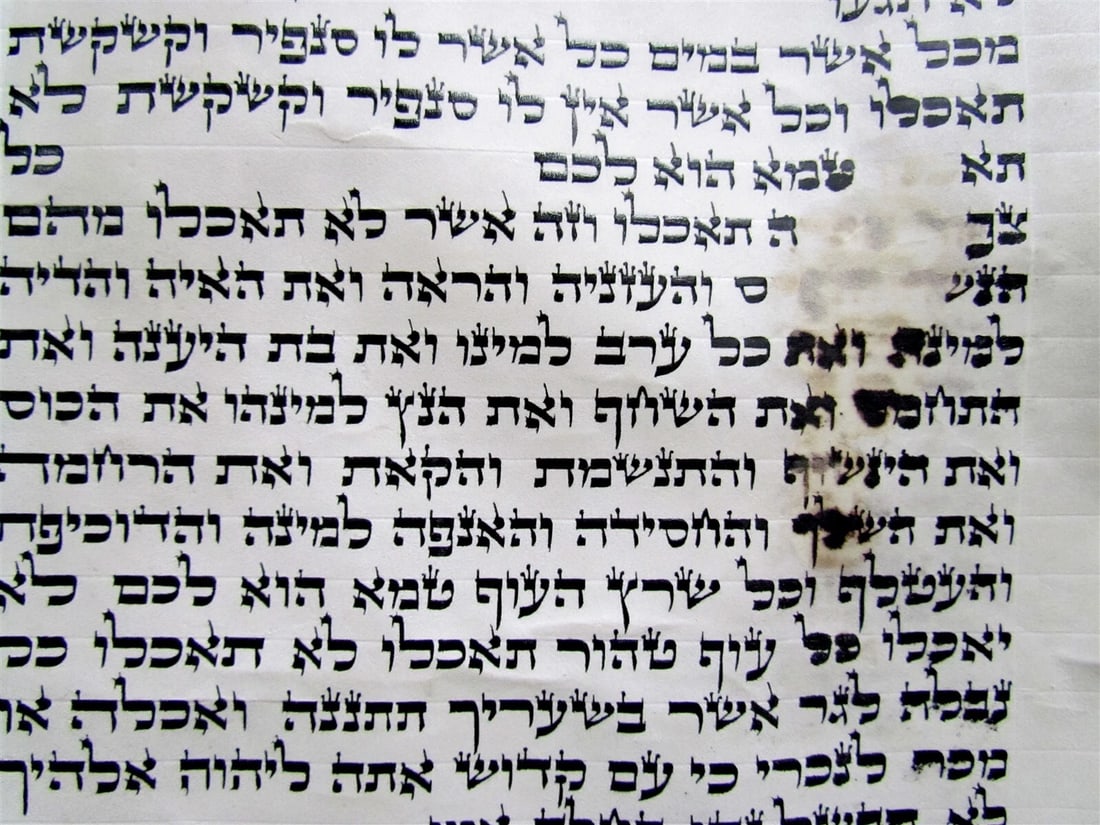 לא תגעו
מכל אשר במים כל אשר לו סנפיר וקשקשת
תאכלו וכל אשר אין לו סנפיר וקשקשת לא
תא טמא הוא לכם כל
צפ ה תאכלו וזה אשר לא תאכלו מהם
הנש ס והעזניה והראה ואת האיה והדיה
למינה ואת כל ערב למינו ואת בת היענה ואת
התחמס ואת השחף ואת הנץ למינהו את הכוס
ואת הינשוף והתנשמת והקאת ואת הרחמה
ואת השלך והחסידה והאנפה למינה והדוכיפת
והעטלף וכל שרץ העוף טמא הוא לכם לא
יאכלו כל עוף טהור תאכלו לא תאכלו כל
נבלה לגר אשר בשעריך תתננה ואכלה או
מכר לנכרי כי עם קדוש אתה ליהוה אלהיך
לא תבשל גדי בחלב אמו